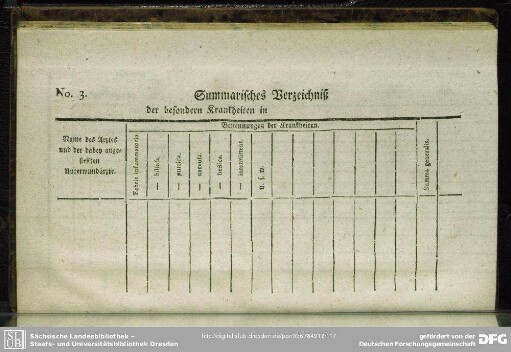 No. 3.
Summarisches Verzeichniß
der besondern Krankheiten in
Benennungen der Krankheiten.
Name des Arztes
und der dabey ange-
stellten
Unterwundärzte.
Febris inflammatoria
— biliosa.
— putrida.
— nervosa.
— hectica.
— intermittens.
u. s. w.
Summa generalis.
Sächsische Landesbibliothek –
Staats- und Universitätsbibliothek Dresden
gefördert von der
Deutschen Forschungsgemeinschaft
DFG
SLUB